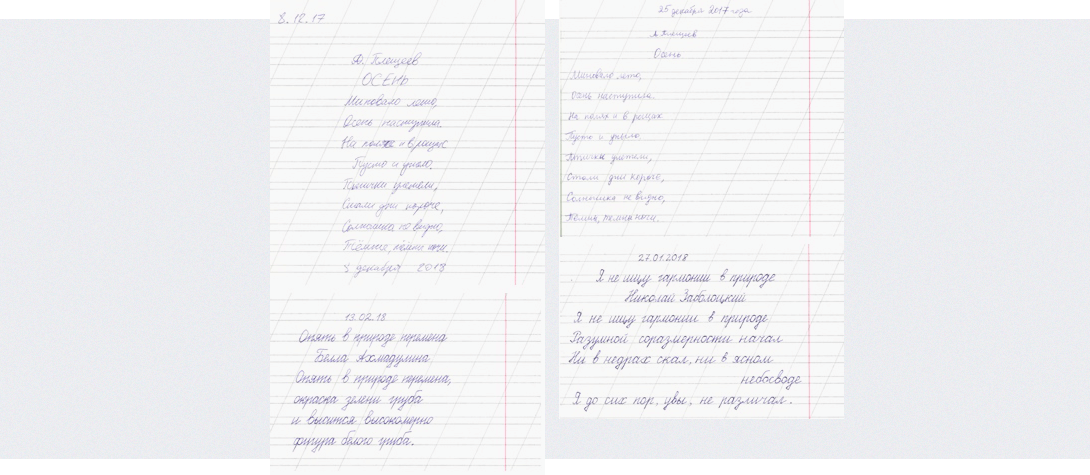 8.12.17
А. Плещеев
ОСЕНЬ
Миновало лето,
Осень наступила.
На полях и в рощах
Пусто и уныло.
Птички улетели,
Стали дни короче,
Солнышка не видно,
Тёмные, тёмные ночи.
8 декабря
13.02.18
Опять в природе перемена
Белла Ахмадулина
Опять в природе перемена,
окраска зелени груба
и высится высокомерно
фигура белого гриба.
25 декабря 2017 года
А Плещеев
Осень
Миновало лето,
Осень наступила.
На полях и в рощах
Пусто и уныло.
Птички улетели,
Стали дни короче,
Солнышка не видно,
Темны, темны ночи.
27.01.2018
Я не ищу гармонии в природе
Николай Заболоцкий
Я не ищу гармонии в природе
Разумной соразмерности начал
Ни в недрах скал, ни в ясном
небосводе
Я до сих пор, увы, не различал.